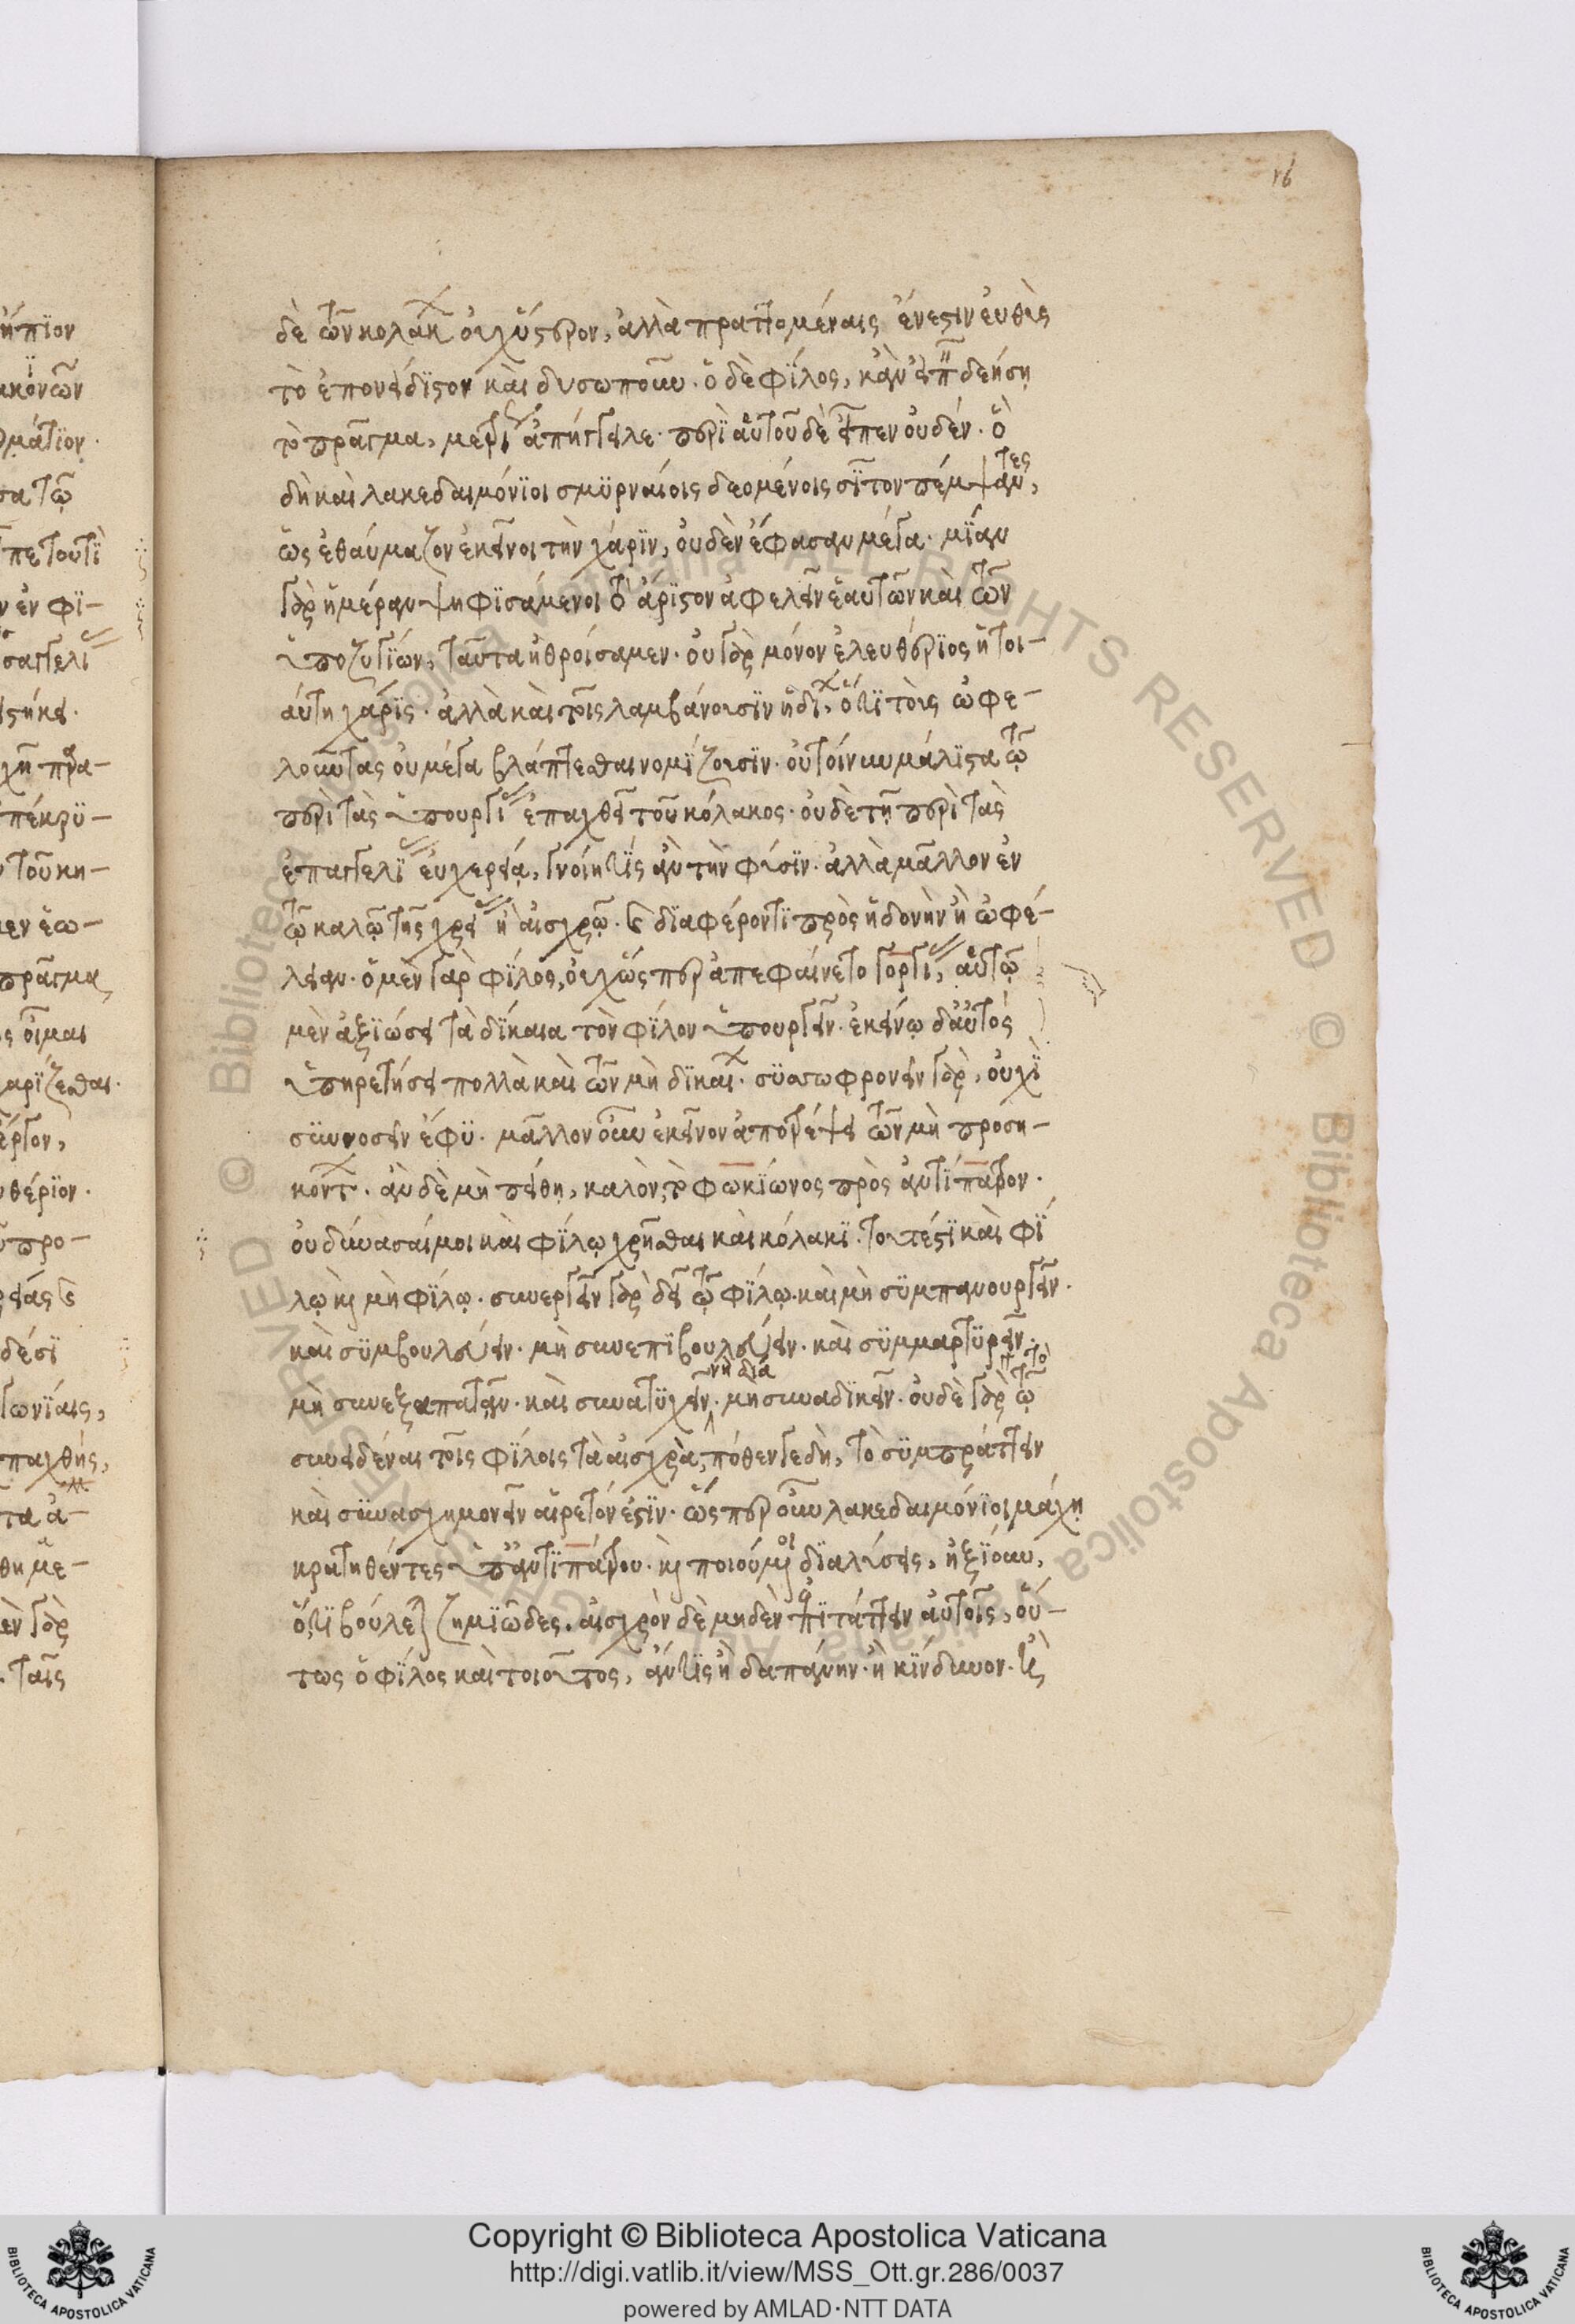 16
δὲ τῶν κολάκων οὐχ ὕστερον, ἀλλὰ πραττομέναις ἔνεστιν εὐθὺς
τὸ ἐπονείδιστον καὶ δυσωποῦν. ὁ δὲ φίλος, κἂν ἐπῇ δεήσῃ
τὸ πρᾶγμα, μετρίως ἀπήγγειλε. περὶ αὐτοῦ δὲ εἶπεν οὐδέν. ὃ
δὴ καὶ λακεδαιμόνιοι σμυρναίοις δεομένοις σῖτον πέμψαντες,
ὡς ἐθαύμαζον ἐκεῖνοι τὴν χάριν, οὐδὲν ἔφασαν μέγα. μίαν
γὰρ ἡμέραν ψηφισάμενοι τὸ ἄριστον ἀφελεῖν ἑαυτῶν καὶ τῶν
ὑποζυγίων, ταῦτα ἠθροίσαμεν. οὐ γὰρ μόνον ἐλευθέριος ἡ τοι-
αύτη χάρις. ἀλλὰ καὶ τοῖς λαμβάνουσιν ἡδίων, ὅτι τοὺς ὠφε-
λοῦντας οὐ μέγα βλάπτεσθαι νομίζουσιν. οὐ τοίνυν μάλιστα τῷ
περὶ τὰς ὑπουργίας ἐπαχθεῖ τοῦ κόλακος. οὐδὲ τῇ περὶ τὰς
ἐπαγγελίας εὐχερείᾳ, γνοίη τις ἂν τὴν φύσιν. ἀλλὰ μᾶλλον ἐν
τῷ καλῷ τῆς χρείας ἢ αἰσχρῷ. καὶ διαφέροντι πρὸς ἡδονὴν ἢ ὠφέ-
λειαν. ὁ μὲν γὰρ φίλος, οὐχ ὥσπερ ἀπεφαίνετο γοργίας, αὑτῷ
μὲν ἀξιώσει τὰ δίκαια τὸν φίλον ὑπουργεῖν. ἐκείνῳ δ' αὐτὸς
ὑπηρετήσει πολλὰ καὶ τῶν μὴ δικαίων. συσσωφρονεῖν γὰρ, οὐχὶ
συννοσεῖν ἔφυ. μᾶλλον οὖν ἐκεῖνον ἀποτρέψει τῶν μὴ προση-
κόντων. ἂν δὲ μὴ πείθῃ, καλὸν τὸ φωκίωνος πρὸς ἀντίπατρον.
οὐ δύνασαί μοι καὶ φίλῳ χρῆσθαι καὶ κόλακι. τουτέστι καὶ φί
λῳ καὶ μὴ φίλῳ. συνεργεῖν γὰρ δεῖ τῷ φίλῳ. καὶ μὴ συμπανουργεῖν.
καὶ συμβουλεύειν. μὴ συνεπιβουλεύειν. καὶ συμμαρτυρεῖν.
μὴ συνεξαπατᾶν. καὶ συνατυχεῖν νὴ δία. μὴ συναδικεῖν. οὐδὲ γὰρ τῷ
συνειδέναι τοῖς φίλοις τὰ αἰσχρὰ, πόθεν γε δὴ, τὸ συμπράττειν
καὶ συνασχημονεῖν αἱρετόν ἐστιν. ὥσπερ οὖν λακεδαιμόνιοι μάχῃ
κρατηθέντες ὑπ' ἀντιπάτρου. καὶ ποιούμενοι διαλύσεις, ἠξίουν,
ὅτι βούλεται ζημιῶδες. αἰσχρὸν δὲ μηδὲν ἐπιτάττειν αὐτοῖς, οὕ-
τως ὁ φίλος καὶ τοιοῦτος, ἄν τις ἢ δαπάνην. ἢ κίνδυνον. ἢ
Copyright © Biblioteca Apostolica Vaticana
http://digi.vatlib.it/view/MSS_Ott.gr.286/0037
powered by AMLAD·NTT DATA